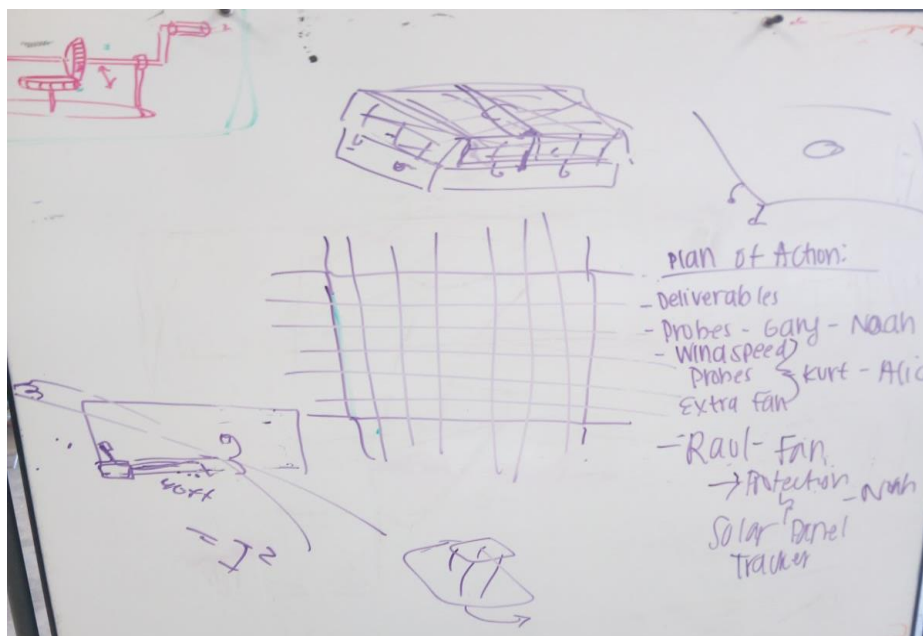 6 6
Plan of Action:
- Deliverables
- Probes - Gary - Noah
- Windspeed
Probes
Extra Fan
Kurt - Alic
- Raul - Fan
→ Protection
- Noah
Solar Panel
Tracker
40ft